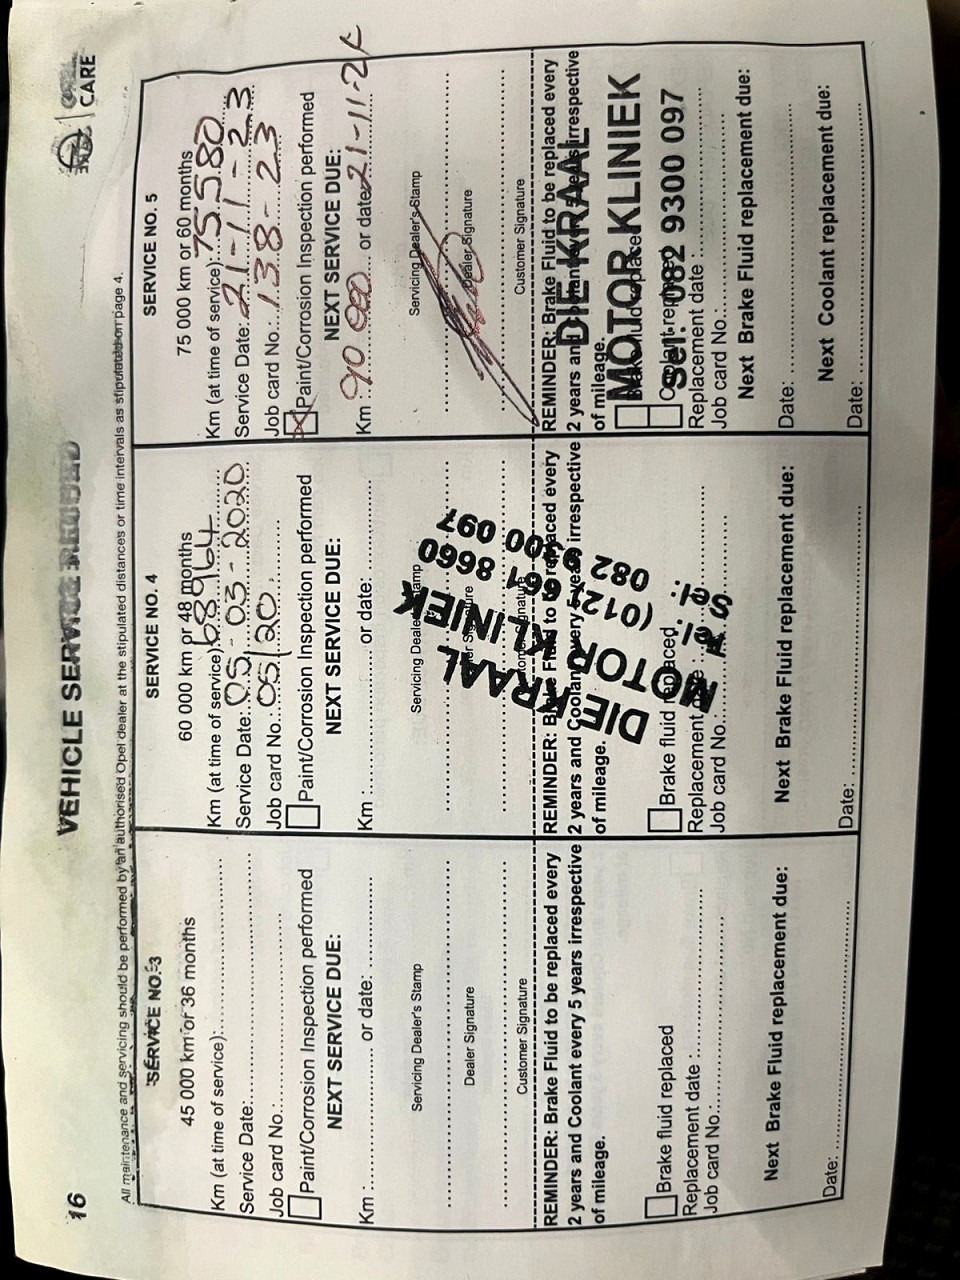 16
VEHICLE SERVICE RECORD
CARE
All maintenance and servicing should be performed by an authorised Opel dealer at the stipulated distances or time intervals as stipulated on page 4.
SERVICE NO. 3
45 000 km or 36 months
Km (at time of service):
Service Date:
Job card No.:
Paint/Corrosion Inspection performed
NEXT SERVICE DUE:
Km : or date:
Servicing Dealer's Stamp
Dealer Signature
Customer Signature
REMINDER: Brake Fluid to be replaced every
2 years and Coolant every 5 years irrespective
of mileage.
Brake fluid replaced
Replacement date :
Job card No.:
Next Brake Fluid replacement due:
Date:
SERVICE NO. 4
60 000 km or 48 months
Km (at time of service): 68964
Service Date: 05-03-2020
Job card No.: 05/20
Paint/Corrosion Inspection performed
NEXT SERVICE DUE:
Km : or date:
Servicing Dealer's Stamp
Dealer Signature
Customer Signature
REMINDER: Brake Fluid to be replaced every
2 years and Coolant every 5 years irrespective
of mileage.
Brake fluid replaced
Replacement date :
Job card No.:
Next Brake Fluid replacement due:
Date:
DIE KRAAL
MOTOR KLINIEK
Tel: (012) 661 8660
Sel: 082 9300 097
SERVICE NO. 5
75 000 km or 60 months
Km (at time of service): 75580
Service Date: 21-11-23
Job card No.: 138-23
Paint/Corrosion Inspection performed
NEXT SERVICE DUE:
Km : 90 000 or date: 21-11-24
Servicing Dealer's Stamp
Dealer Signature
Customer Signature
REMINDER: Brake Fluid to be replaced every
2 years and Coolant every 5 years irrespective
of mileage.
Brake fluid replaced
Coolant replaced
Replacement date :
Job card No.:
Next Brake Fluid replacement due:
Date:
Next Coolant replacement due:
Date:
DIE KRAAL
MOTOR KLINIEK
Sel: 082 9300 097